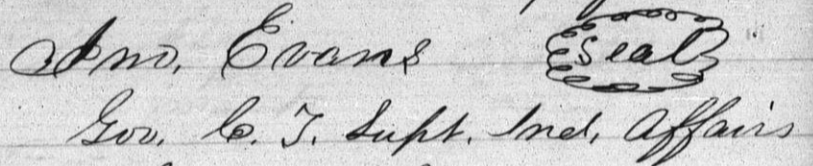 Jno. Evans seal
Gov. C. T. Supt. Ind. Affairs